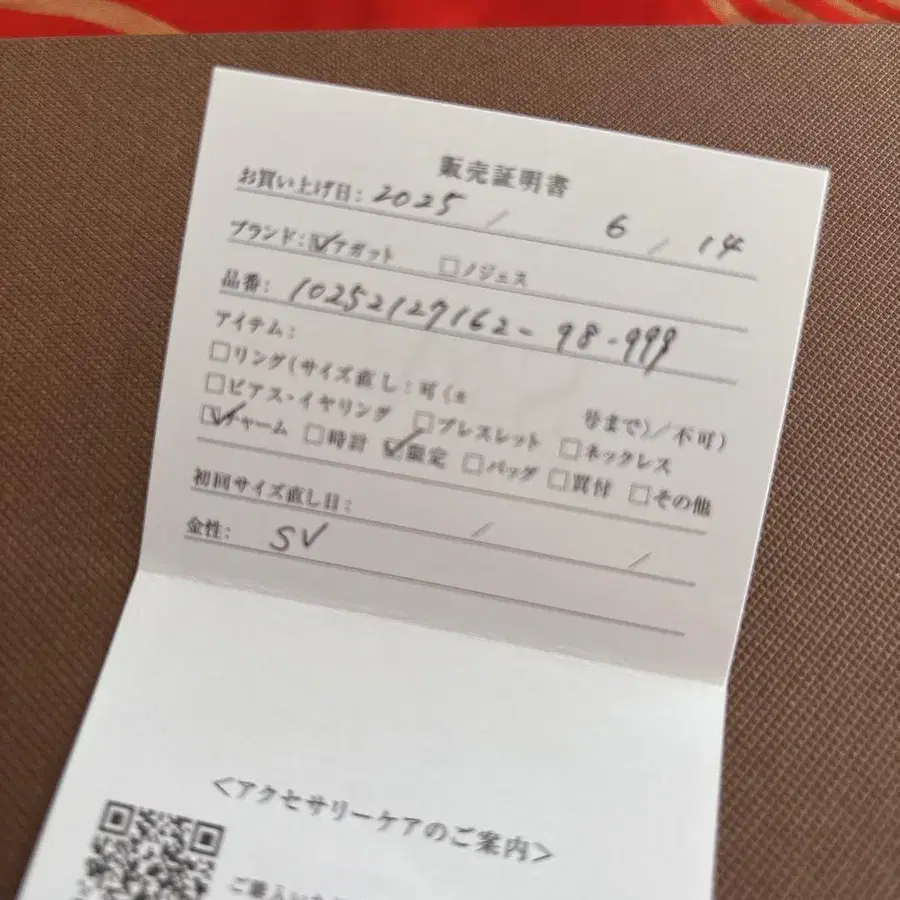 販売証明書
お買い上げ日: 2025 / 6 / 14
ブランド: ☑アガット □ノジェス
品番: 10252127162-98-999
アイテム:
□リング(サイズ直し:可( 号まで)/不可)
□ピアス・イヤリング □ブレスレット □ネックレス
☑チャーム □時計 ☑限定 □バッグ □買付 □その他
初回サイズ直し日: / /
金性: SV
<アクセサリーケアのご案内>